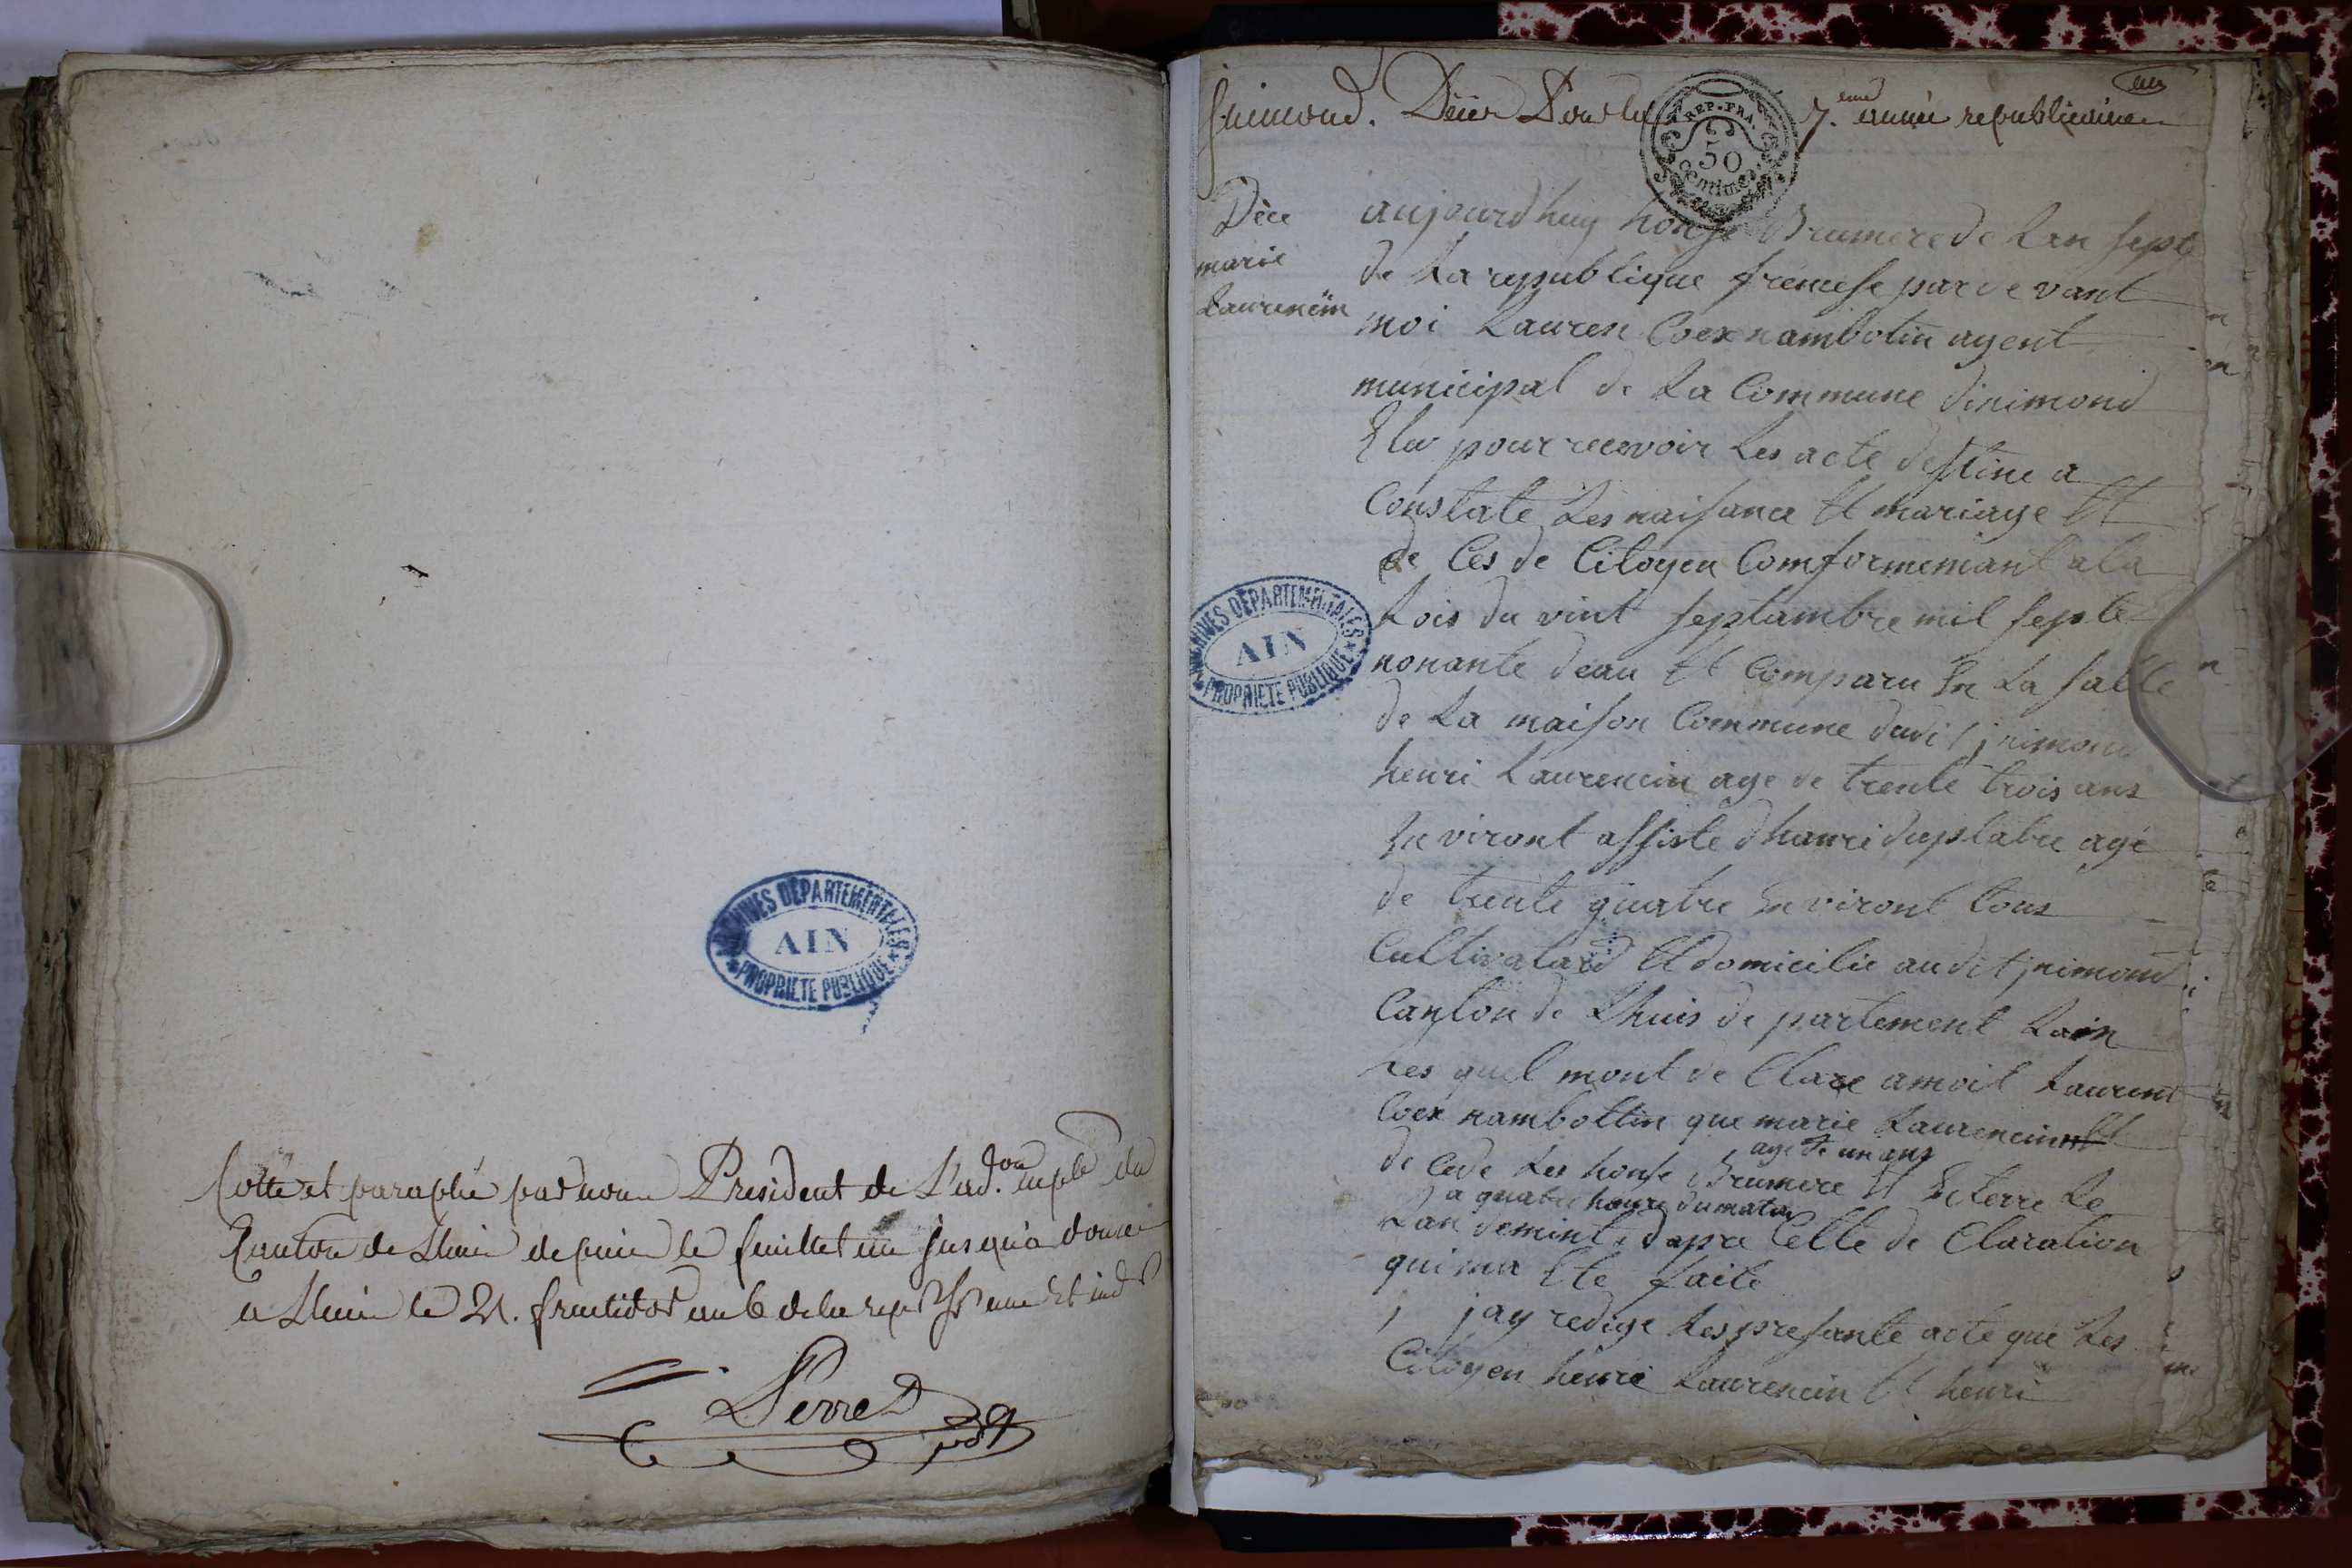 Cotté et paraphé par nous President de L'ad.on mple du
Canton de Lhuis depuis le feuillet un jusqu'a douze
a Lhuis le 21. fructidor an 6 de la rep. fr. une et ind.
Perret
ARCHIVES DEPARTEMENTALES
AIN
PROPRIETE PUBLIQUE
jnimond. Décès Pour la 7.eme année republicaine
un
REP. FRA.
50
Centimes
Dèce
marie
Laurencin
aujourdhuy honse Brumere de Lan sept
de La republique francese par de vant
moi Lauren Coex nambotin agent
municipal de La Commune dinimond
Elu pour recevoir Les acte destine a
Constate Les naisance Et mariage Et
de Ces de Citoyen Comformemant a la
Lois du vint septambre mil septe
nonante deau Et Comparu En La salle
de La maison Commune dudit jnimond
henri Laurencin age de trente trois ans
En viront assiste dhanri duplatre agé
de trente quatre En viront tous
Cultivalard Et domicilie audit jnimond
Canton de Lhuis de partement Lain
Les quel mont de Clare a moit Laurent
Coex nambottin que marie Laurencin
age de un ans
de cede Les honse Brumere Et Eterre Le
a quatre heure du matin
Lan demint dapre Celle de Claration
qui ma Ete faite
j jay redige Les presante acte que Les
Citoyen henri Laurencin Et henri
ARCHIVES DEPARTEMENTALES
AIN
PROPRIETE PUBLIQUE